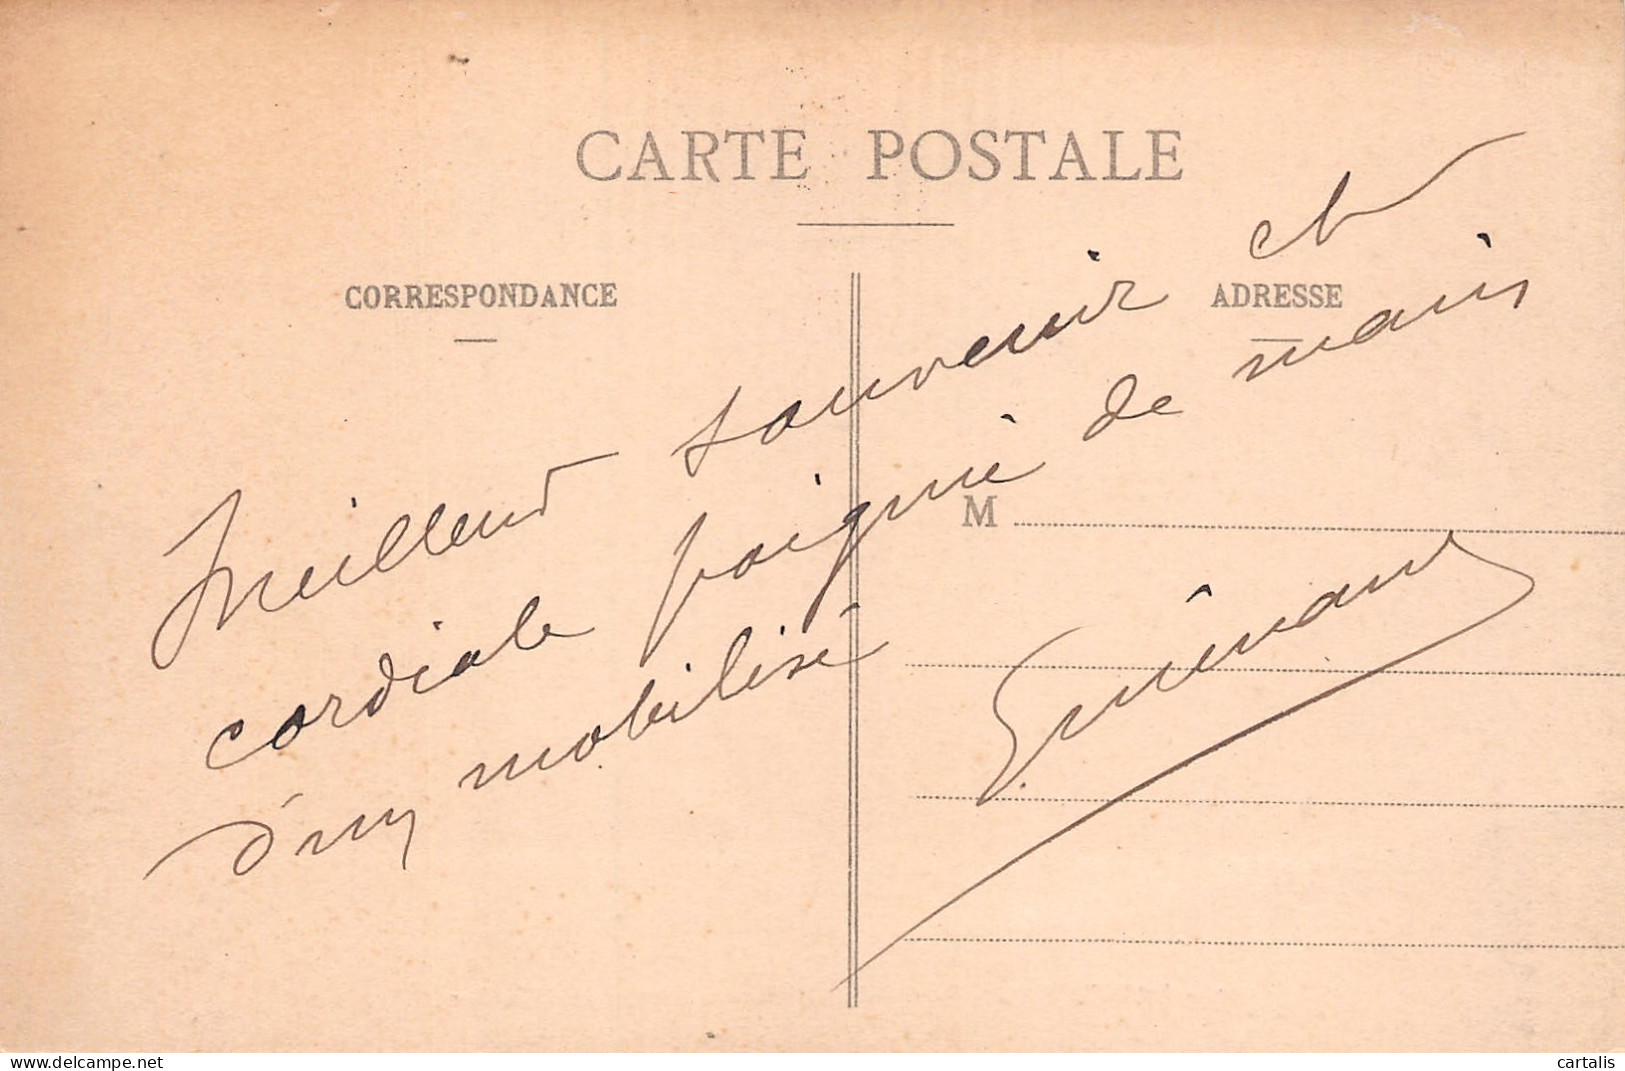 CARTE POSTALE
CORRESPONDANCE
ADRESSE
Meilleur souvenir et
cordiale poignié de mains
d'un mobilisé
M
delcampe.net
cartalis